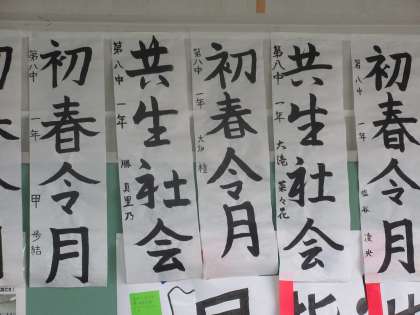 初春令月
第八中 一年 甲 歩結
共生社会
第八中 一年 勝 真里乃
初春令月
第八中 一年
共生社会
第八中 一年 大滝 菜々花
初春令月
第八中 一年